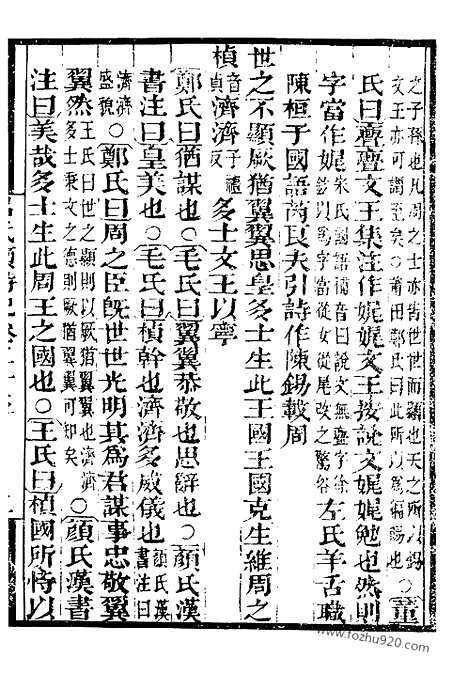 之子孫也凡周之士亦皆世世而顯也天之所以錫
文王亦可謂至矣○莆田鄭氏曰此所以爲錫也○董
氏曰亹亹文王集注作娓娓文王按說文娓娓勉也然則
字當作娓朱氏國語補音曰說文無亹字徐鉉以爲字當從女從尾改之驚俗左氏羊舌職
陳桓子國語芮良夫引詩作陳錫載周
世之不顯厥猶翼翼思皇多士生此王國王國克生維周之
楨音貞濟濟子禮反多士文王以寧
鄭氏曰猶謀也○毛氏曰翼翼恭敬也思辭也○顏氏漢
書注曰皇美也○毛氏曰楨幹也濟濟多威儀也顏氏漢書注曰
濟濟盛貌○鄭氏曰周之臣旣世世光明其爲君謀事忠敬翼
翼然王氏曰世之顯則以厥猶翼翼也濟濟多士秉文之德則厥猶翼翼可知矣○顏氏漢書
注曰美哉多士生此周王之國也○王氏曰楨國所恃以
www.fozhu920.com